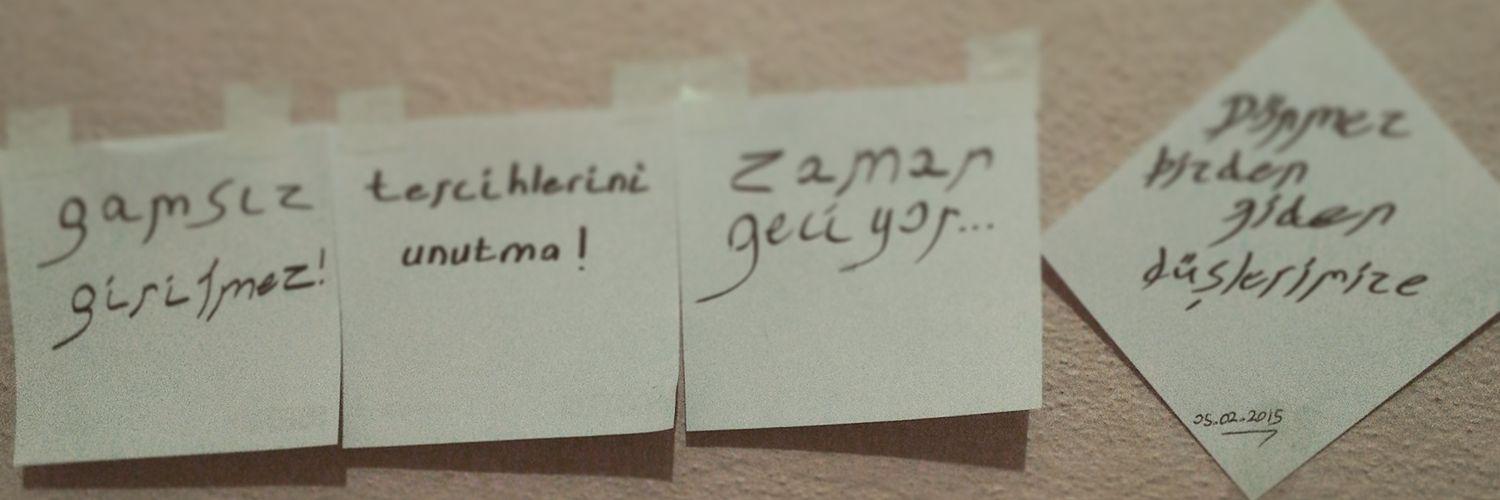 gamsız
girilmez!
tercihlerini
unutma!
zaman
geciyor...
Dönmez
bizden
giden
düşlerimize
05.02.2015